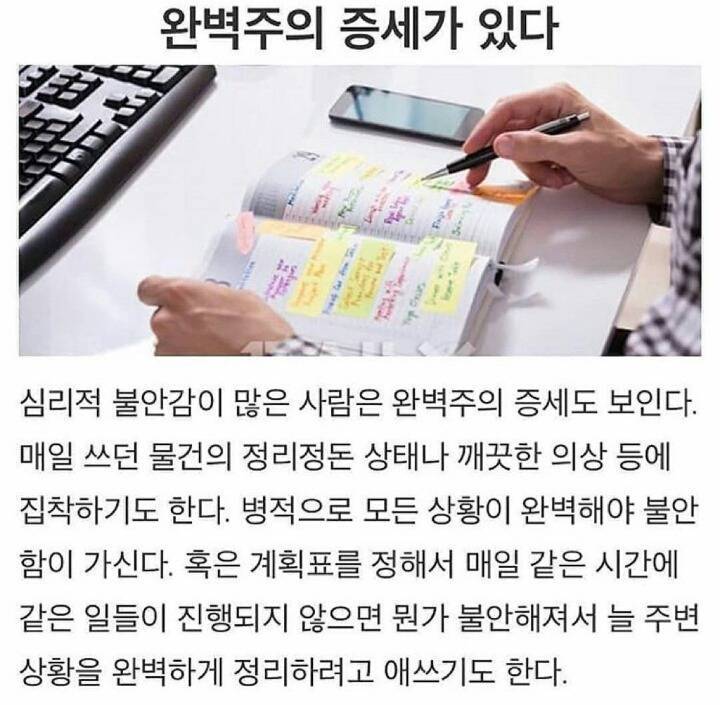 완벽주의 증세가 있다
심리적 불안감이 많은 사람은 완벽주의 증세도 보인다.
매일 쓰던 물건의 정리정돈 상태나 깨끗한 의상 등에
집착하기도 한다. 병적으로 모든 상황이 완벽해야 불안
함이 가신다. 혹은 계획표를 정해서 매일 같은 시간에
같은 일들이 진행되지 않으면 뭔가 불안해져서 늘 주변
상황을 완벽하게 정리하려고 애쓰기도 한다.